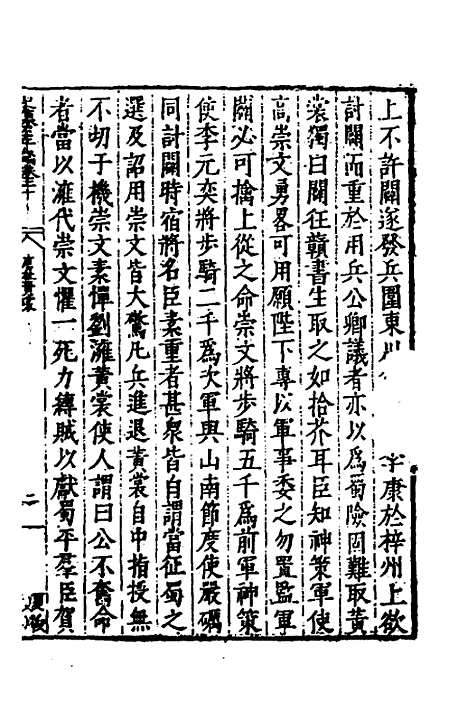 上不許闢遂發兵圍東川 李康於梓州上欲
討闢而重於用兵公卿議者亦以爲蜀險固難取黃
裳獨曰闢狂戇書生取之如拾芥耳臣知神策軍使
高崇文勇畧可用願陛下專以軍事委之勿置監軍
闢必可擒上從之命崇文將步騎五千爲前軍神策
使李元奕將步騎二千爲次軍與山南節度使嚴礪
同討闢時宿將名臣素重者甚衆皆自謂當征蜀之
選及詔用崇文皆大驚凡兵進退黃裳自中指授無
不切于機崇文素憚劉澭黃裳使人謂曰公不奮命
者當以澭代崇文懼一死力縳賊以獻蜀平羣臣賀
二